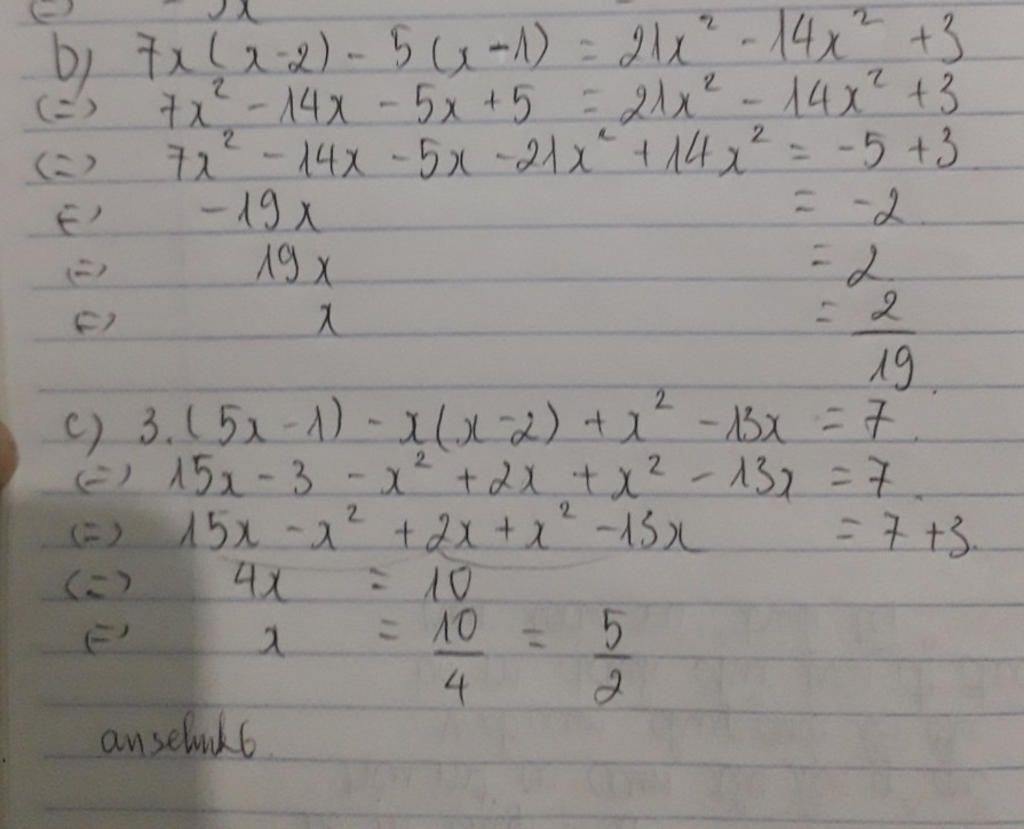 b) 7x(x-2) - 5(x-1) = 21x² - 14x² + 3
(=) 7x² - 14x - 5x + 5 = 21x² - 14x² + 3
(=) 7x² - 14x - 5x - 21x² + 14x² = -5 + 3
(=) -19x = -2
(=) 19x = 2
(=) x = 2/19
c) 3.(5x - 1) - x(x - 2) + x² - 13x = 7
(=) 15x - 3 - x² + 2x + x² - 13x = 7
(=) 15x - x² + 2x + x² - 13x = 7 + 3
(=) 4x = 10
(=) x = 10/4 = 5/2